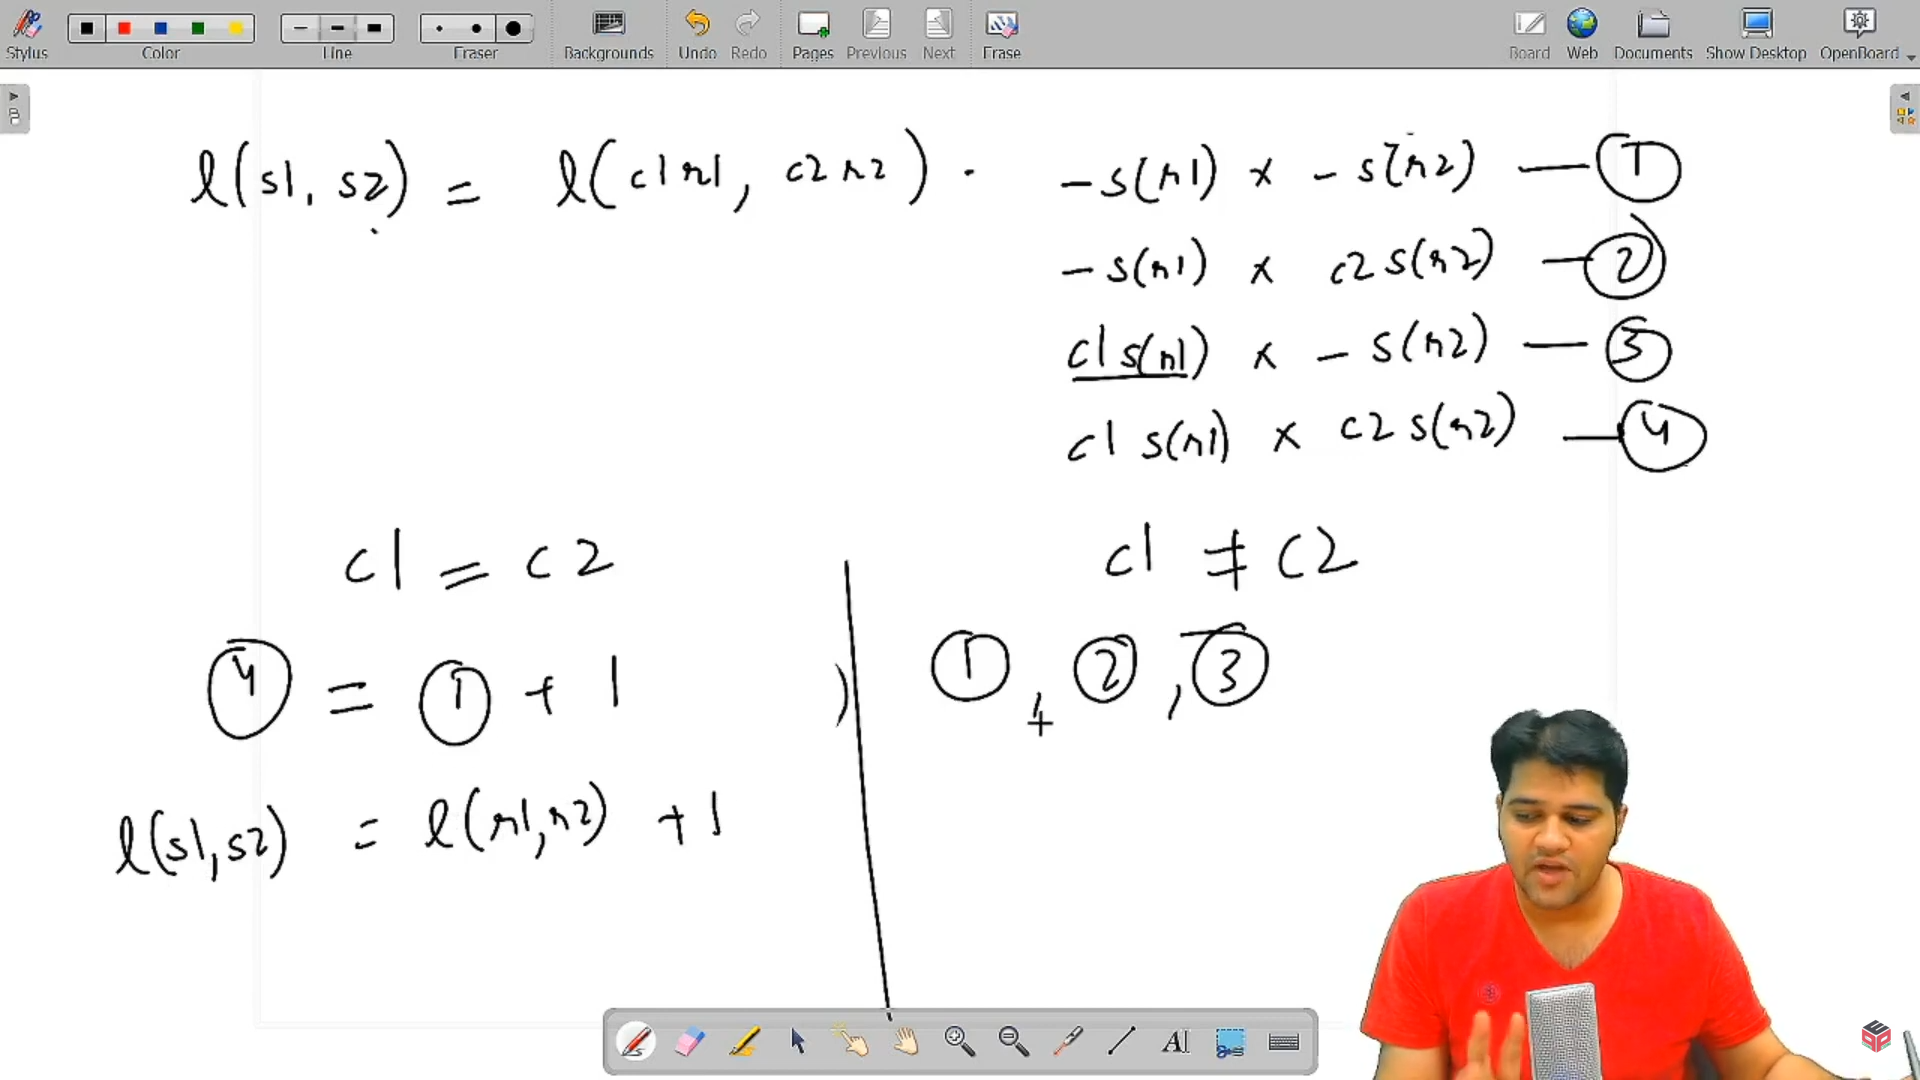 Stylus Color Line Eraser Backgrounds Undo Redo Pages Previous Next Erase Board Web Documents Show Desktop OpenBoard
l(s1, s2) = l(c1r1, c2r2) .
-s(r1) x -s(r2) — 1
-s(r1) x c2 s(r2) — 2
c1 s(r1) x - s(r2) — 3
c1 s(r1) x c2 s(r2) — 4
c1 = c2
4 = 1 + 1
l(s1,s2) = l(r1,r2) + 1
c1 ≠ c2
1 , 2 , 3